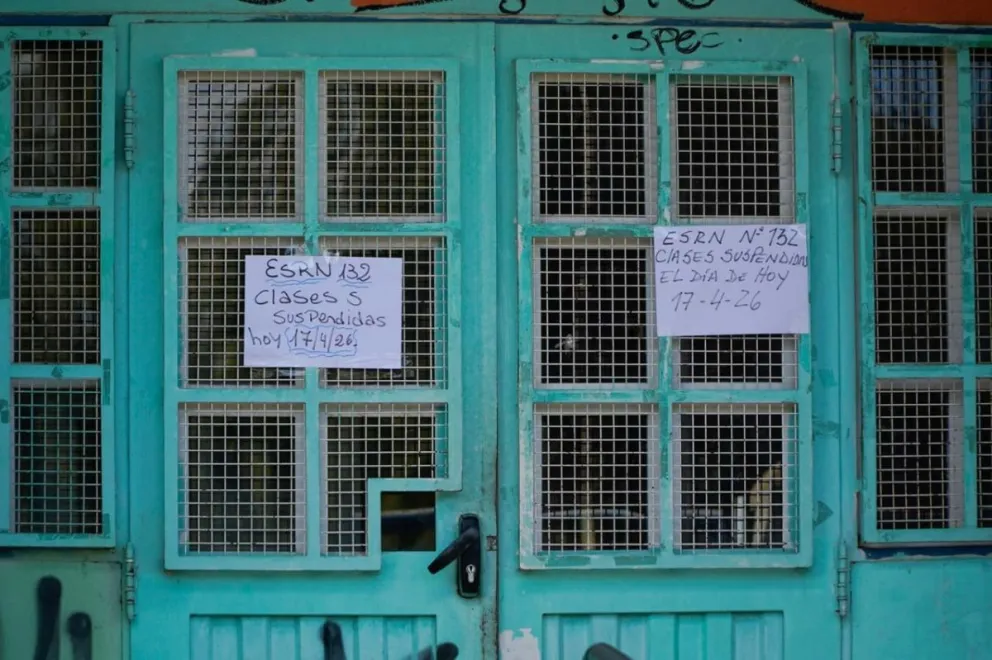 ·SPEC·
ESRN 132
Clases S
Suspendidas
hoy 17/4/26.
ESRN N° 132
CLASES SUSPENDIDAS
EL DÍA DE HOY
17-4-26